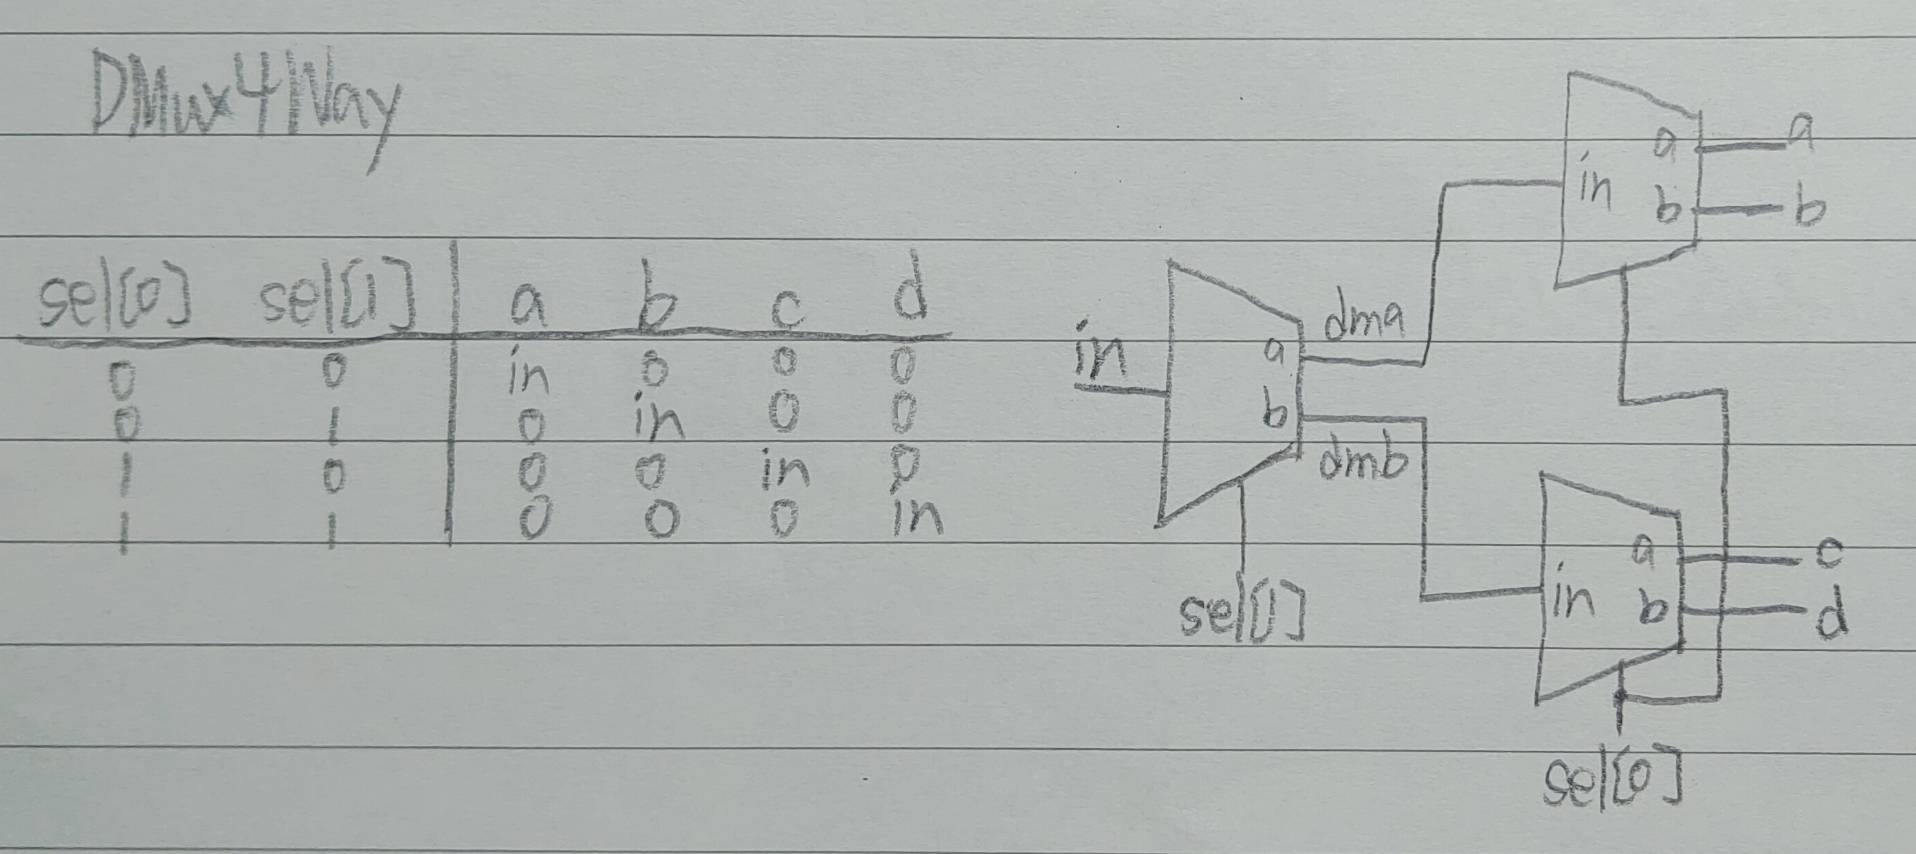 DMux4Way
sel[0] sel[1] a b c d
0 0 in 0 0 0
0 1 0 in 0 0
1 0 0 0 in 0
1 1 0 0 0 in
in
a
b
dma
dmb
sel[1]
in
a
b
a
b
in
a
b
c
d
sel[0]